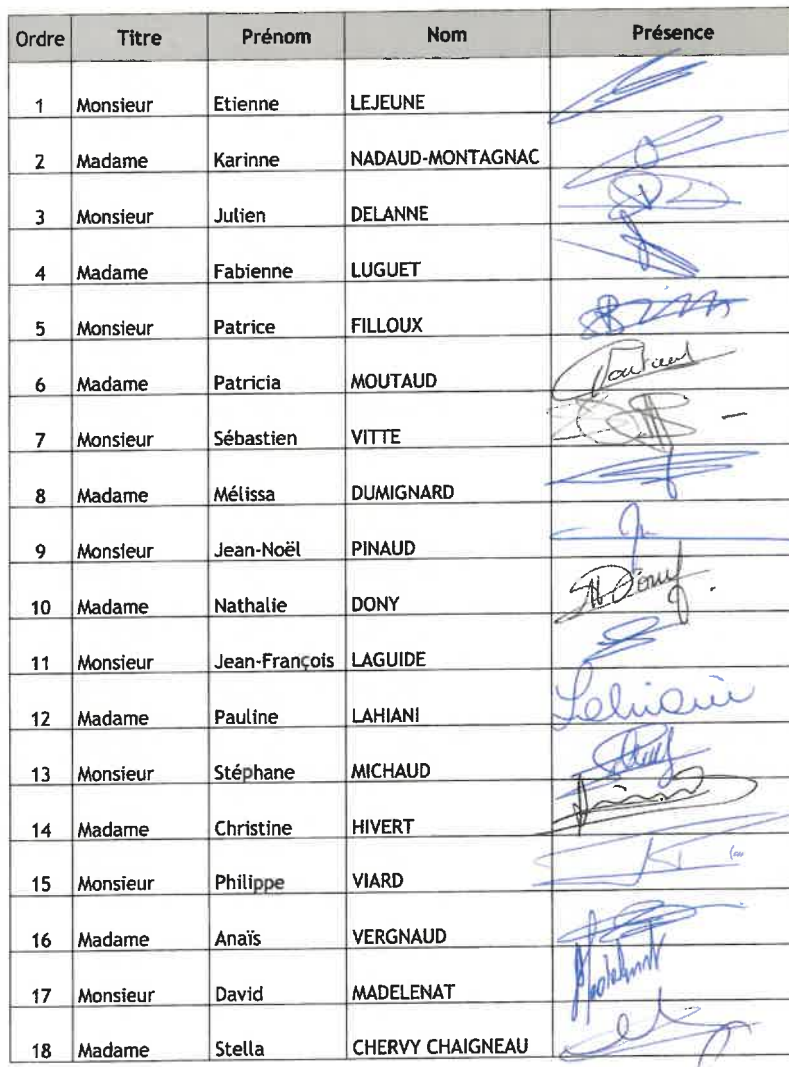 Ordre Titre Prénom Nom Présence
1 Monsieur Etienne LEJEUNE
2 Madame Karinne NADAUD-MONTAGNAC
3 Monsieur Julien DELANNE
4 Madame Fabienne LUGUET
5 Monsieur Patrice FILLOUX
6 Madame Patricia MOUTAUD
7 Monsieur Sébastien VITTE
8 Madame Mélissa DUMIGNARD
9 Monsieur Jean-Noël PINAUD
10 Madame Nathalie DONY
11 Monsieur Jean-François LAGUIDE
12 Madame Pauline LAHIANI
13 Monsieur Stéphane MICHAUD
14 Madame Christine HIVERT
15 Monsieur Philippe VIARD
16 Madame Anaïs VERGNAUD
17 Monsieur David MADELENAT
18 Madame Stella CHERVY CHAIGNEAU